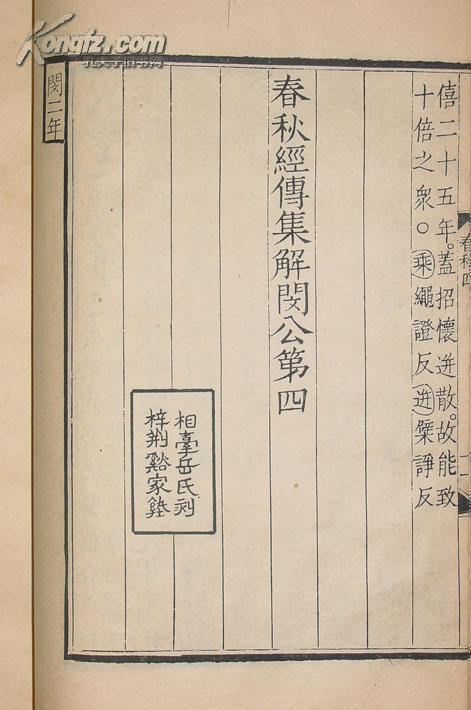 僖二十五年。蓋招懷迸散。故能致
十倍之衆○乘繩證反迸檗諍反
春秋經傳集解閔公第四
相臺岳氏刻
梓荆谿家塾
閔二年
春秋四
Kongfz.com